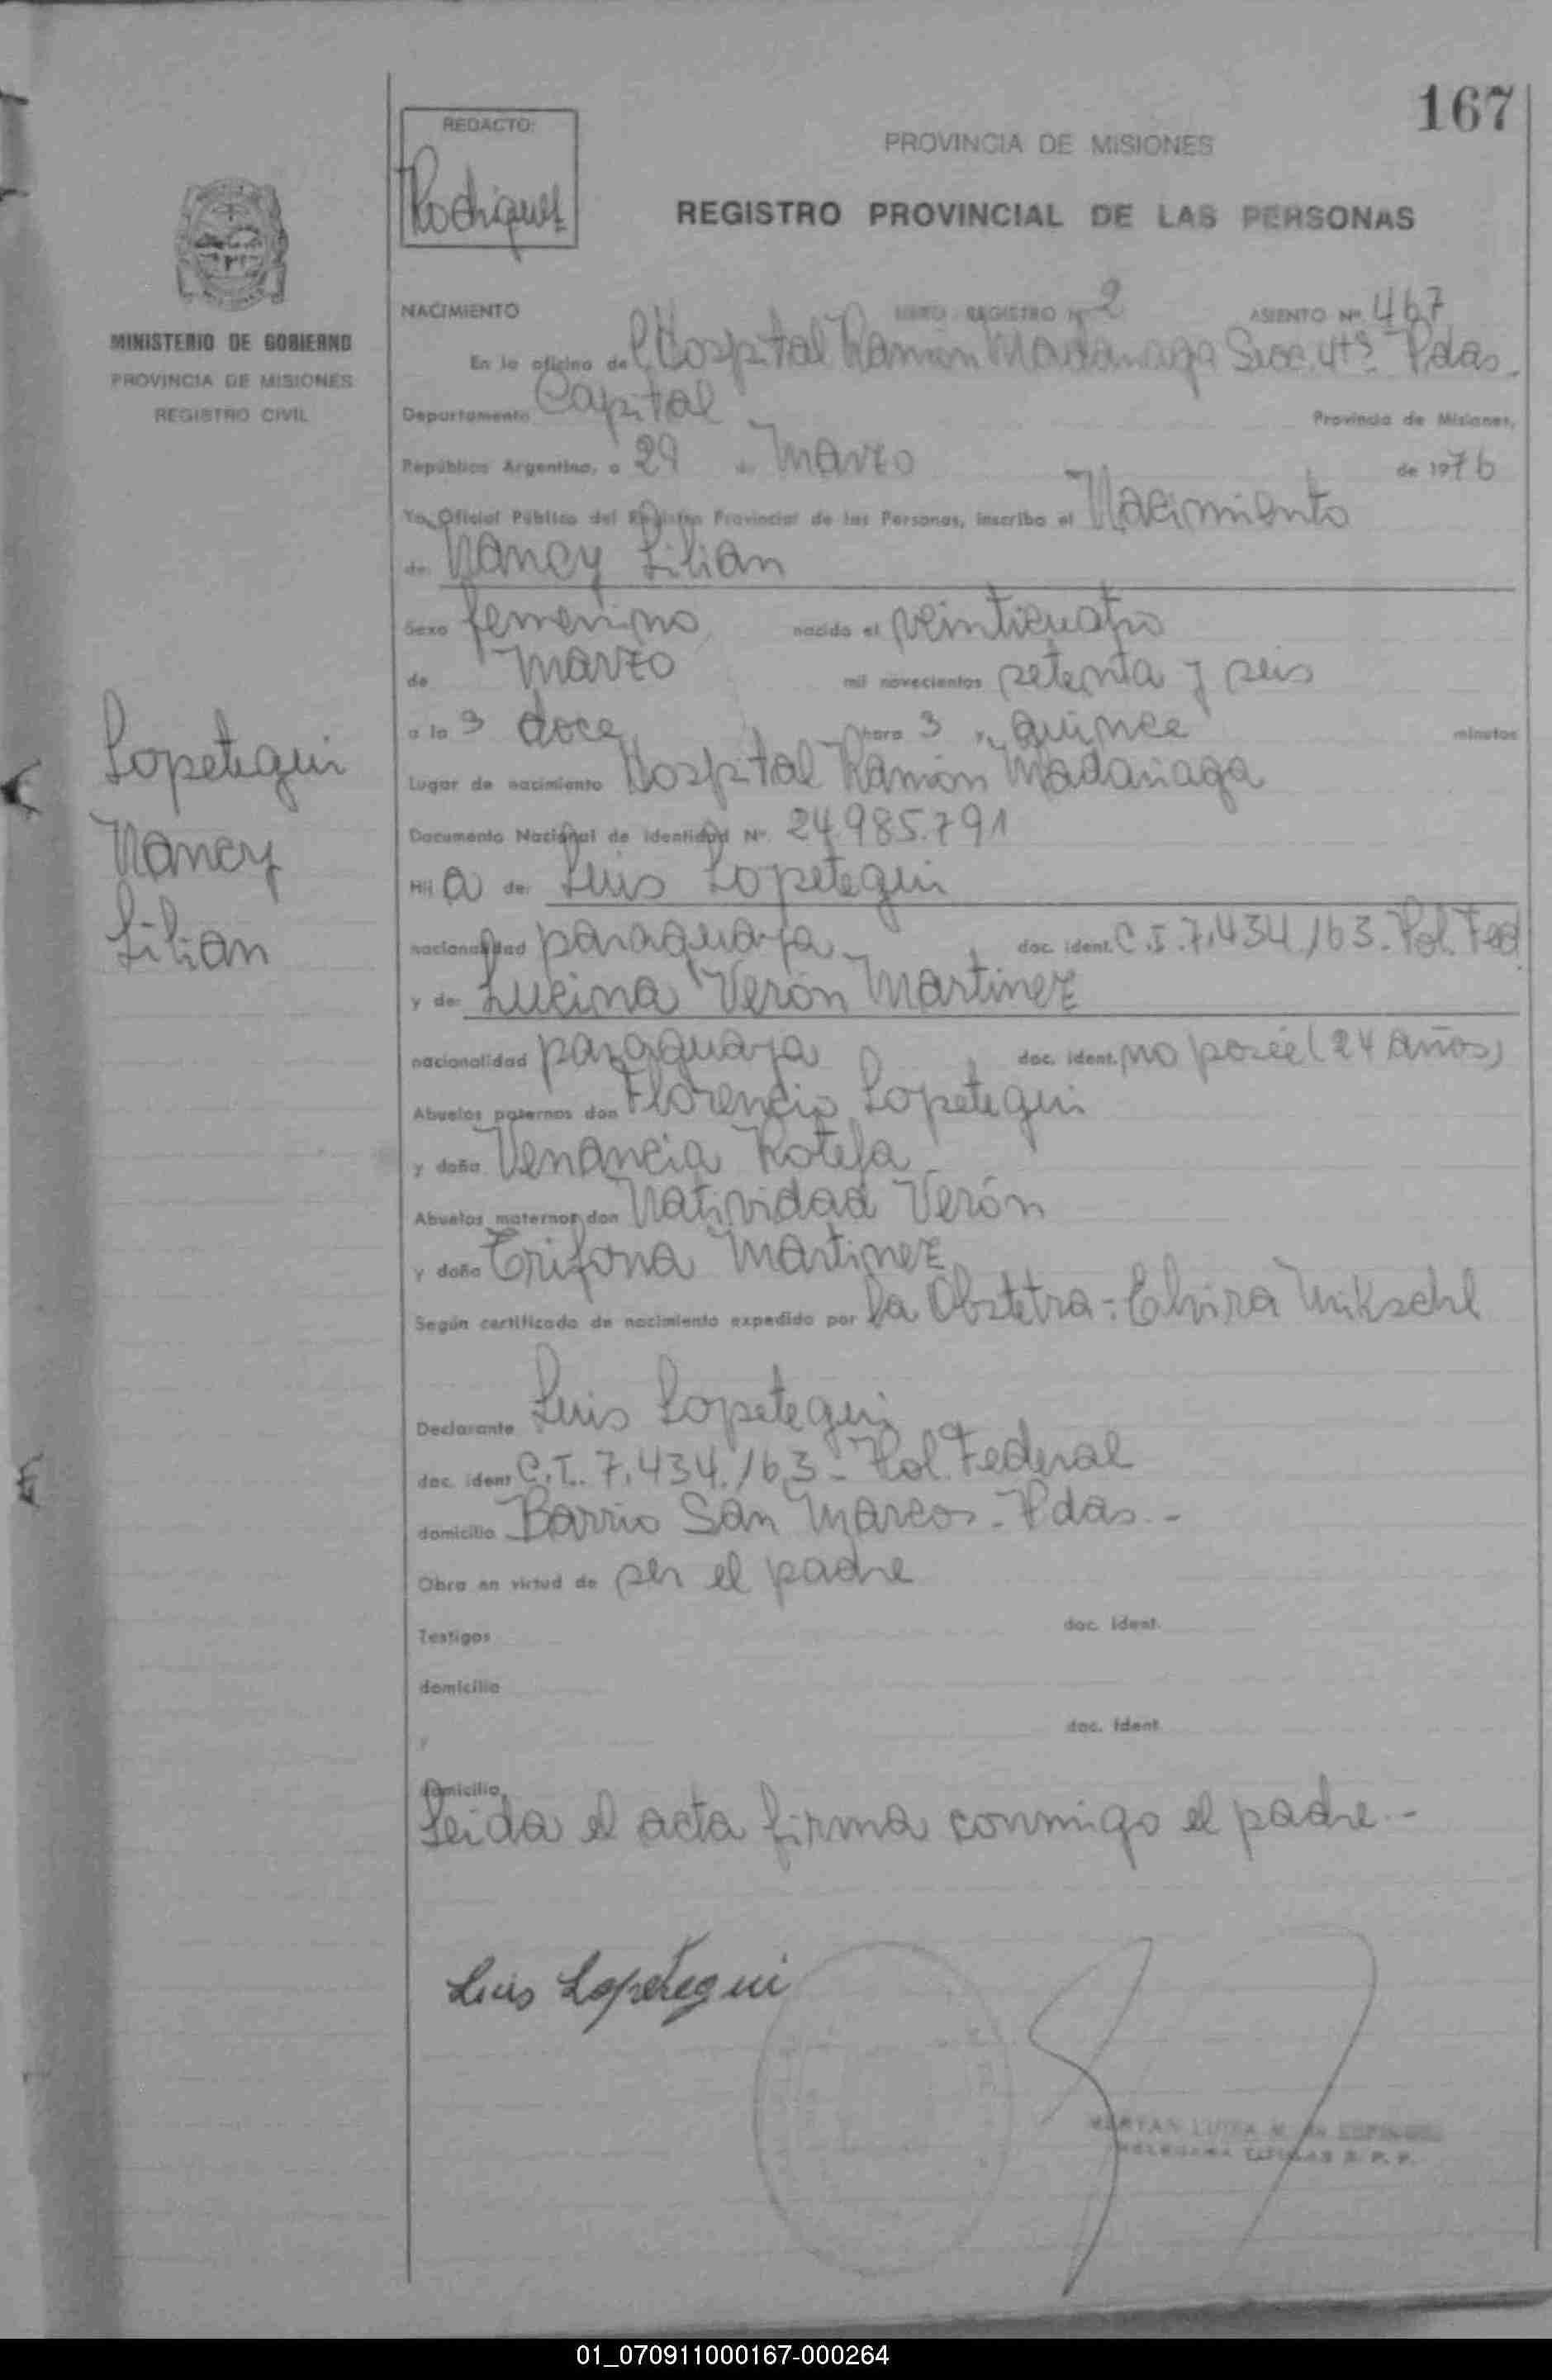 167
REDACTO:
Rodriguez
PROVINCIA DE MISIONES
REGISTRO PROVINCIAL DE LAS PERSONAS
MINISTERIO DE GOBIERNO
PROVINCIA DE MISIONES
REGISTRO CIVIL
NACIMIENTO REGISTRO Nº 2 ASIENTO Nº 467
En la oficina del Hospital Ramón Madariaga Secc. 4ta Pdas.
Departamento Capital Provincia de Misiones,
República Argentina, a 29 de Marzo de 1976
Yo, Oficial Público del Registro Provincial de las Personas, inscribo el Nacimiento
de Nancy Lilian
Sexo femenino nacido el veinticuatro
de marzo mil novecientos setenta y seis
a las doce horas y quince minutos
Lugar de nacimiento Hospital Ramón Madariaga
Documento Nacional de Identidad Nº 24.985.791
Hija de: Luis Lopetegui
nacionalidad paraguaya doc. ident. C.I. 7.434.163 - Pol. Fed
y de: Lucina Verón Martinez
nacionalidad paraguaya doc. ident. no posée (24 años)
Abuelos paternos don Florencio Lopetegui
y doña Venancia Rotela
Abuelos maternos don Natividad Verón
y doña Trifona Martinez
Según certificado de nacimiento expedido por la Obstetra: Elvira
Declarante Luis Lopetegui
doc. ident C.I. 7.434.163 - Pol. Federal
domicilio Barrio San Marcos - Pdas. -
Obra en virtud de ser el padre
Testigos doc. ident.
domicilio
y doc. ident.
domicilio
Leida el acta firma conmigo el padre. -
Lopetegui
Nancy
Lilian
Luis Lopetegui
01_070911000167-000264